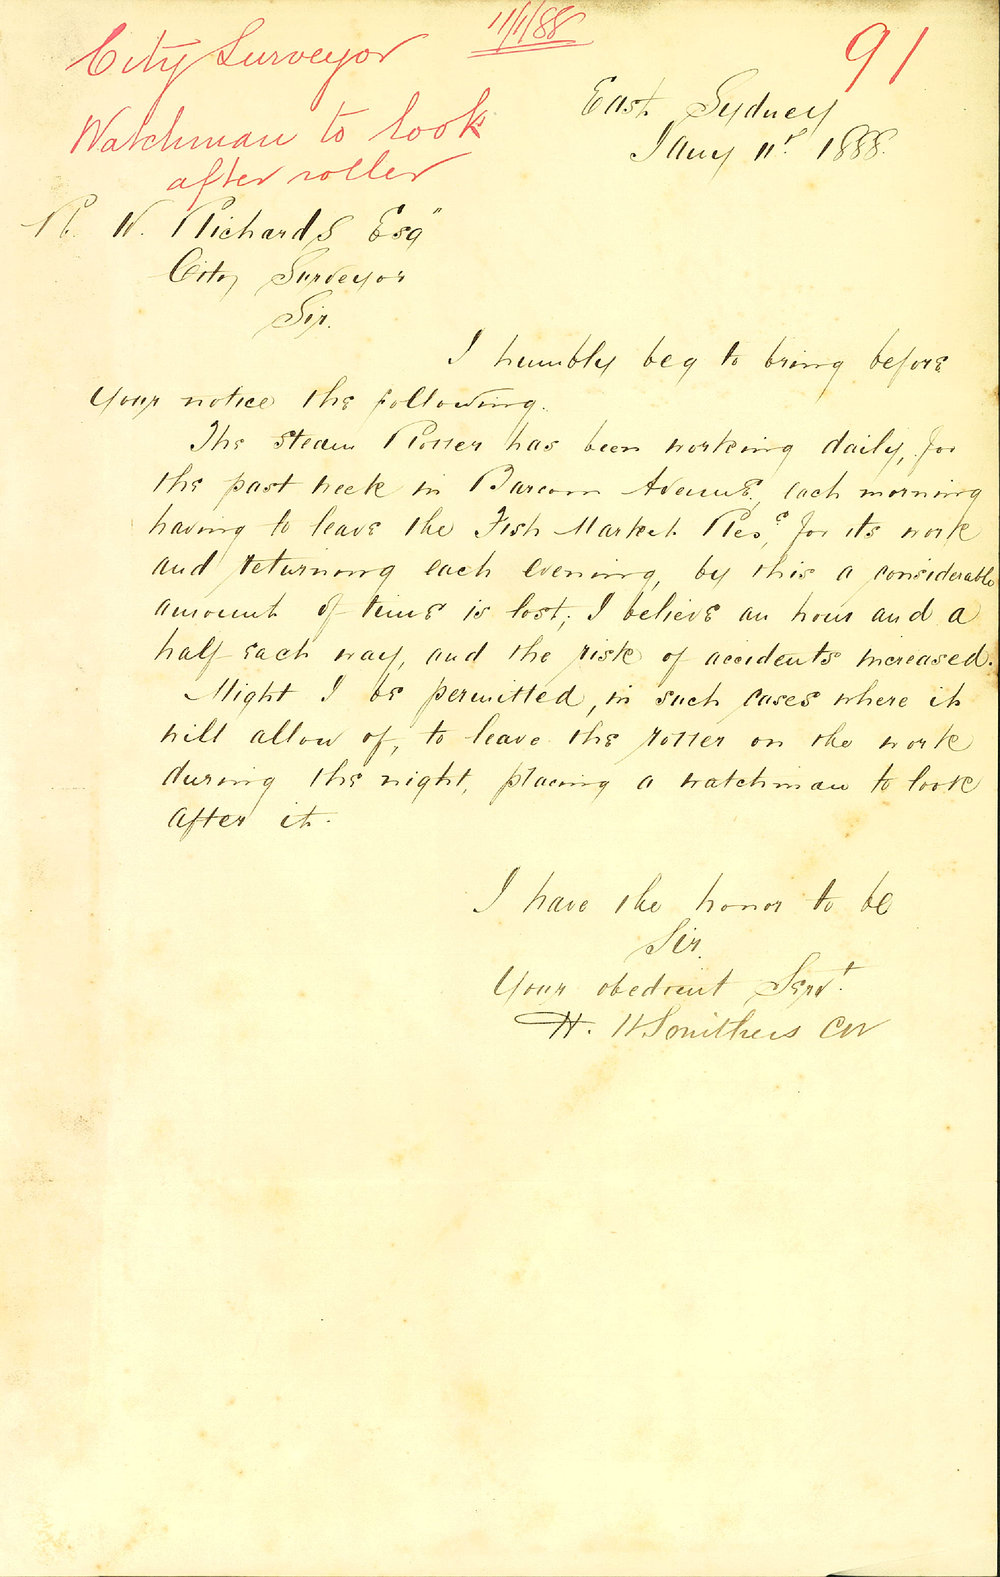 City Surveyor
11/1/88
91
Watchman to look
after roller
East Sydney
Jany 11th 1888.
R. W. Richards Esq"
City Surveyor
Sir.
I humbly beg to bring before
your notice the following.
The Steam Roller has been working daily, for
the past week in Barcom Avenue, each morning
having to leave the Fish Market Rese, for its work
and returning each evening, by this a considerable
amount of time is lost; I believe an hour and a
half each way, and the risk of accidents increased.
Might I be permitted, in such cases where it
will allow of, to leave the roller on the work
during the night, placing a watchman to look
after it.
I have the honor to be
Sir.
Your obedient Servt.
H. Smithers CW